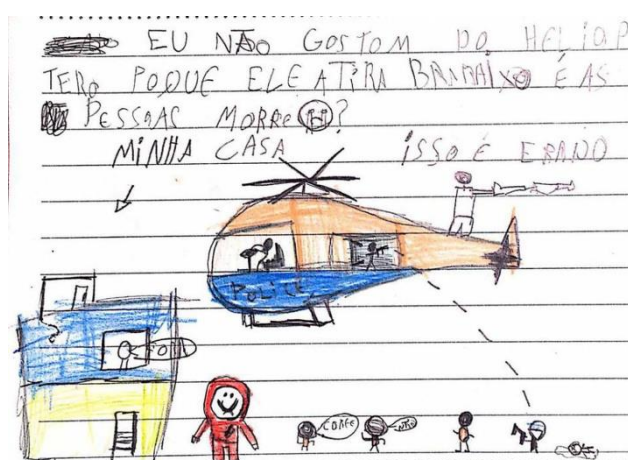 EU NÃO GOSTOM DO HELIOP
TERO POQUE ELE ATIRA BARAIXO É AS
PESSOAS MORRE
MINHA CASA ISSO É ERADO
POLICE
CORRE